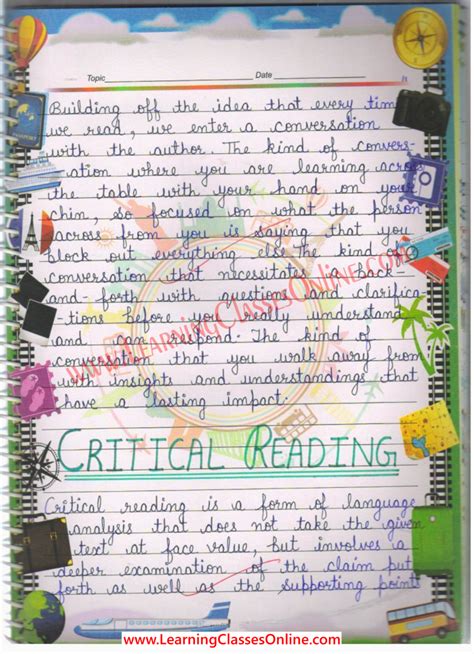 Topic Date
Building off the idea that every time
we read, we enter a conversation
with the author. The kind of convers-
-ation where you are learning across
the table with your hand on your
chin, so focused on what the person
across from you is saying that you
block out everything else. The kind of
conversation that necessitates a back-
-and-forth with questions and clarifica-
-tions before you really understand
and can respond. The kind of
conversation that you walk away from
with insights and understandings that
have a lasting impact.
CRITICAL READING
Critical reading is a form of language
analysis that does not take the given
text at face value, but involves a
deeper examination of the claim put
forth as well as the supporting points
www.LearningClassesOnline.com
www.LearningClassesOnline.com